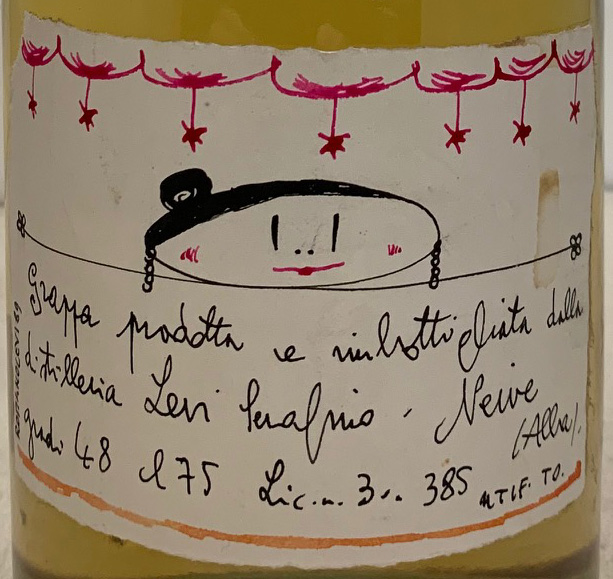 Grappa prodotta e imbottigliata dalla
distilleria Levi Serafino · Neive
(Alba).
gradi 48 cl 75 Lic. n. 3 385 UTIF. TO.